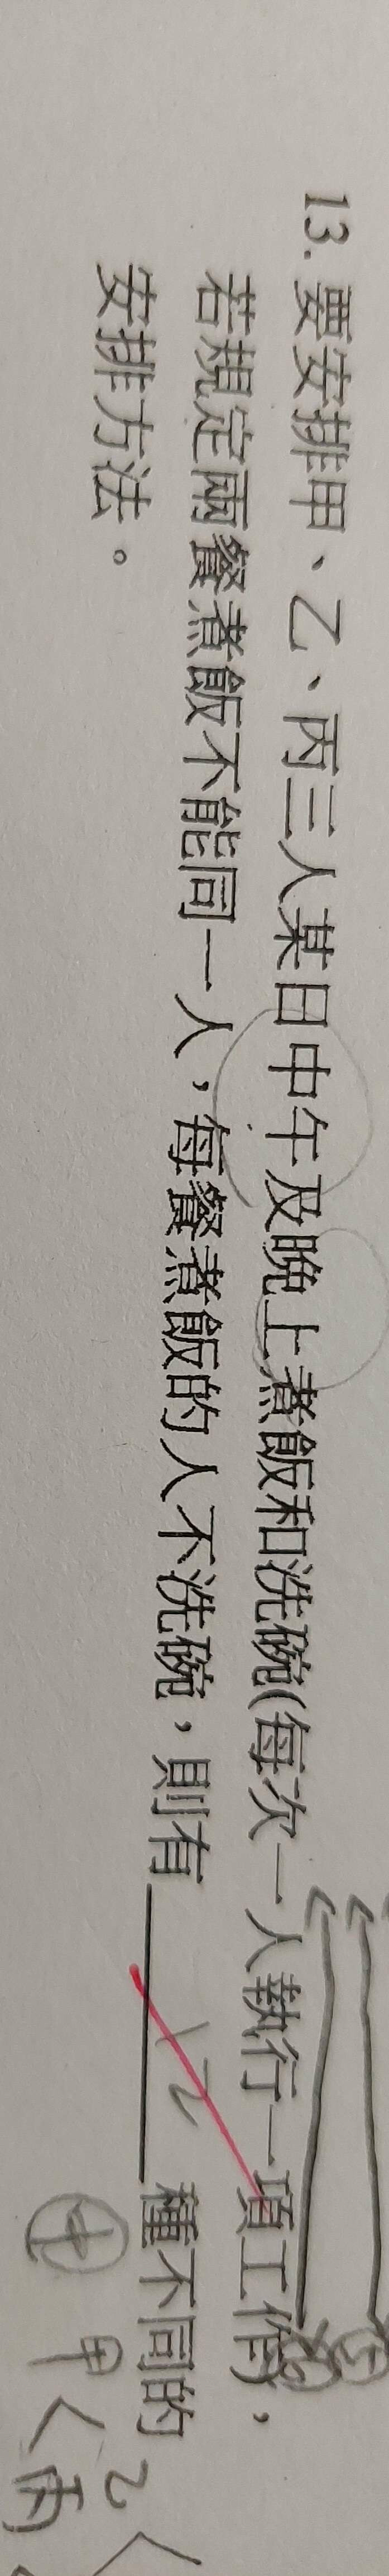 13. 要安排甲、乙、丙三人某日中午及晚上煮飯和洗碗(每次一人執行一項工作)，
若規定兩餐煮飯不能同一人，每餐煮飯的人不洗碗，則有 12 種不同的
安排方法。
中 甲 乙
丙